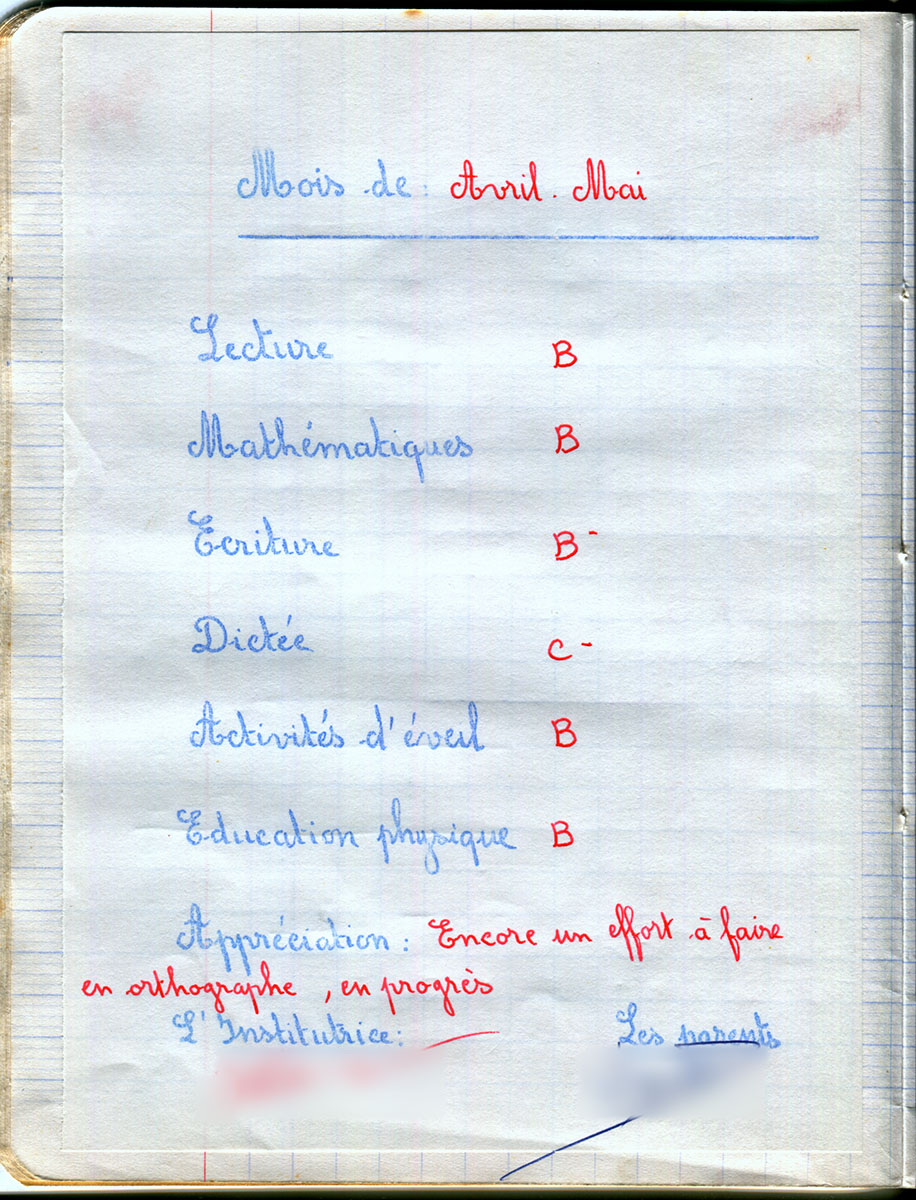 Mois de : Avril. Mai
Lecture B
Mathématiques B
Ecriture B-
Dictée C-
Activités d'éveil B
Education physique B
Appréciation : Encore un effort à faire
en orthographe, en progrès
L'Institutrice: Les parents